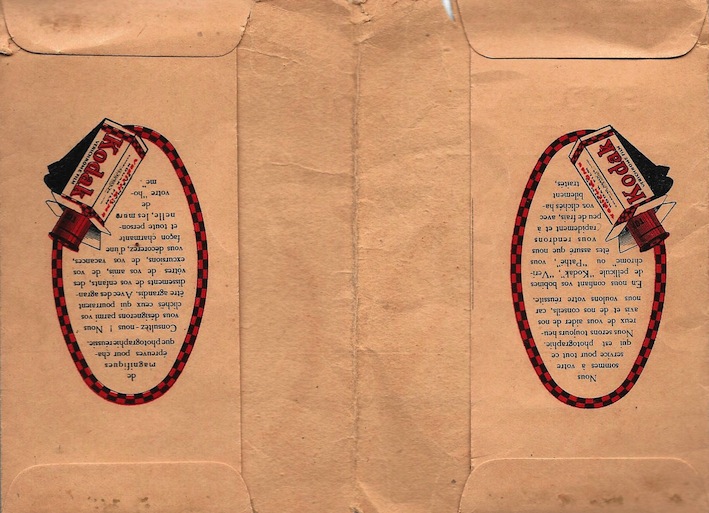 Nous
sommes à votre
service pour tout ce
qui est photographie.
Nous serons toujours heu-
reux de vous aider de nos
avis et de nos conseils, car
nous voulons votre réussite.
En nous confiant vos bobines
de pellicule "Kodak", "Veri-
chrome" ou "Pathé", vous
êtes assuré que nous
vous rendrons
rapidement et à
peu de frais, avec
vos clichés ha-
bilement
traités,
Kodak
VERICHROME FILM
de
magnifiques
épreuves pour cha-
que photographie réussie.
Consultez-nous ! Nous
vous désignerons parmi vos
clichés ceux qui pourraient
être agrandis. Avec des agran-
dissements de vos enfants, des
vôtres de vos amis, de vos
excursions, de vos vacances,
vous décorerez, d'une
façon charmante
et toute person-
nelle, les murs
de
votre "ho-
me".
Kodak
VERICHROME FILM